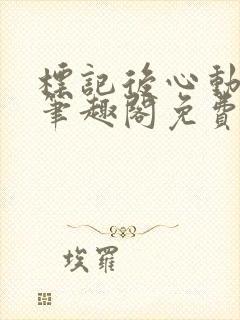 標記後心動
筆趣閣免費
埃羅